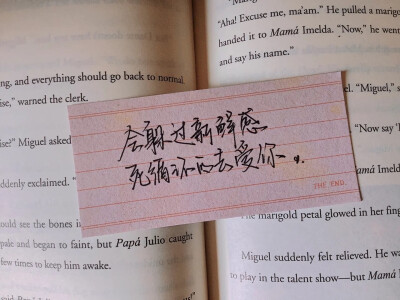 ng, and everything should go back to normal
ise," warned the clerk.
ise?" Miguel asked
ddenly exclaimed. "
ould see the bones i
pale and began to faint, but Papá Julio caught
few times to keep him awake.
会躲过新鲜感
死循环的去爱你
THE END
"Aha! Excuse me, ma'am." He pulled a marigo
handed it to Mamá Imelda. "Now," he went
and say his name."
"Miguel," s
"Now say 'I
amá Imelda
he marigold petal glowed in her fing
Miguel suddenly felt relieved. He wa
to play in the talent show—but Mamá